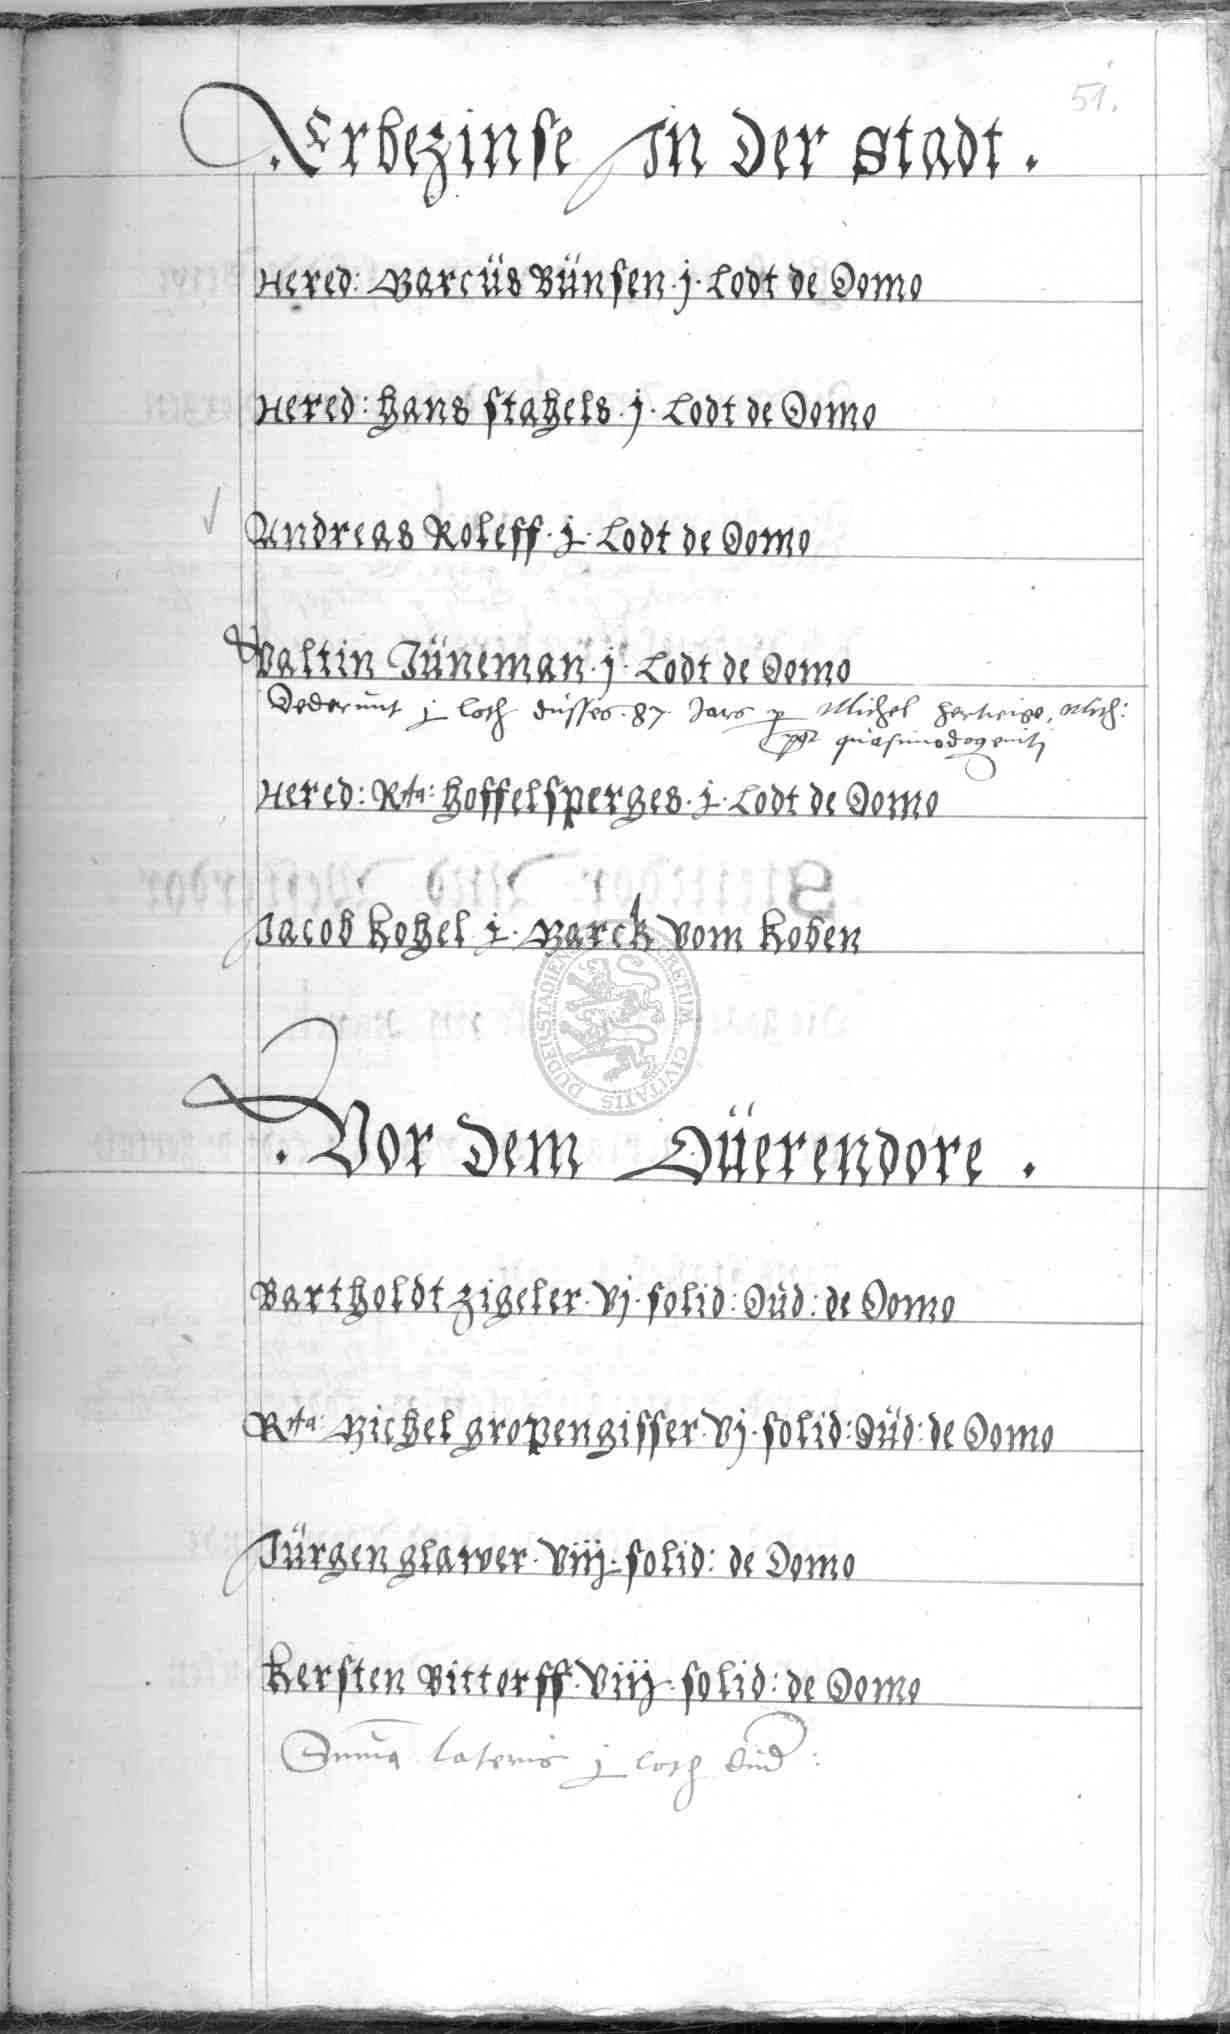 51.
Erbezinse In der Stadt.
Hered: Marcüs Bünsen. j. Lodt de Domo
Hered: Hans Stahels. j. Lodt de Domo
Andreas Roleff. j. Lodt de Domo
Valtin Jüneman. j. Lodt de Domo
Dederunt j loth düsses. 87 Jars p Michel Hertwige, Mich:
quasimodogeniti
Hered: Rta: Hoffelsperges. j. Lodt de Domo
Jacob Kohel j. Marck vom Koben
DUDERSTADIENSIS SECRETUM CIVITATIS
Vor dem Düerendore.
Bartholdt Zigeler. Vj. solid: Düd: de Domo
Rta: Michel Gropengisser. Vj. solid: Düd: de Domo
Jürgen Glawer. Viij. solid: de Domo
Kersten Bittorff. Viij. solid: de Domo
Summa lateris j loth düd: